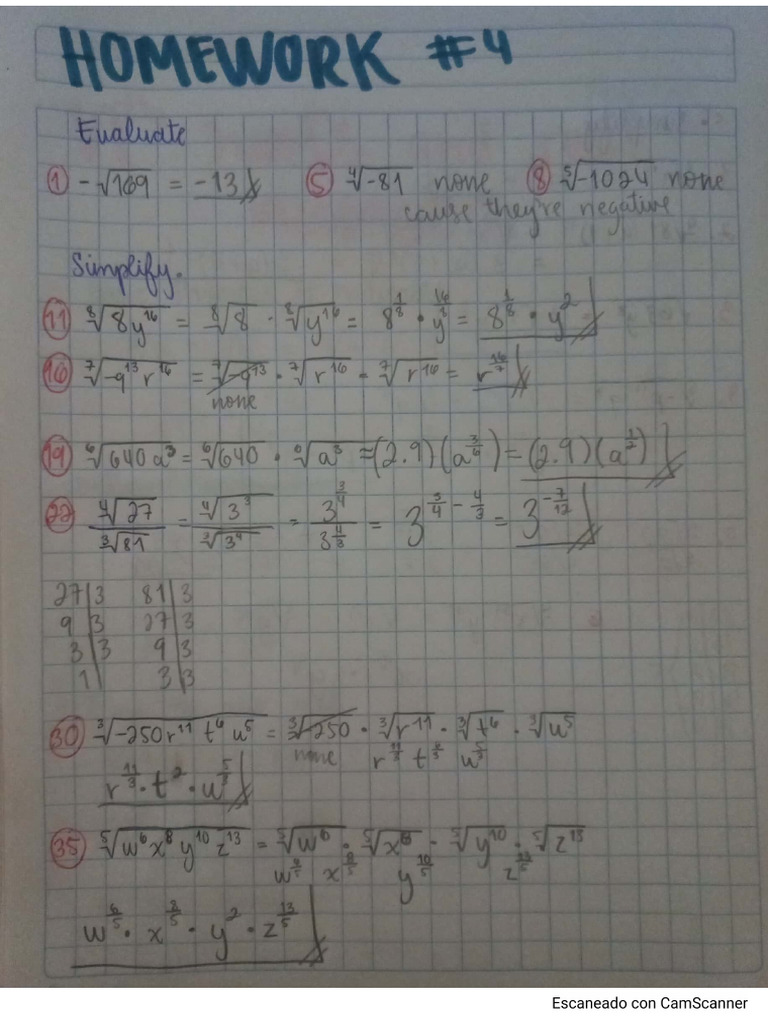 HOMEWORK #4
Evaluate
① -√169 = -13 ⑤ ∜-81 none ⑧ ⁵√-1024 none
cause they're negative
Simplify.
⑪ ⁸√8y¹⁶ = ⁸√8 · ⁸√y¹⁶ = 8^(1/8) · y^(16/8) = 8^(1/8) · y²
⑯ ⁷√-q¹³r¹⁶ = ⁷√-q¹³ · ⁷√r¹⁶ = ⁷√r¹⁶ = r^(16/7)
none
⑲ ⁶√640a³ = ⁶√640 · ⁶√a³ = (2.9)(a^(3/6)) = (2.9)(a^(1/2))
㉒ ∜27 / ∛81 = ∜3³ / ∛3⁴ = 3^(3/4) / 3^(4/3) = 3^(3/4 - 4/3) = 3^(-7/12)
27|3 81|3
9|3 27|3
3|3 9|3
1| 3|3
㉚ ∛-250r¹¹t⁶u⁵ = ∛-250 · ∛r¹¹ · ∛t⁶ · ∛u⁵
none r^(11/3) t^(6/3) u^(5/3)
r^(11/3) · t² · u^(5/3)
㉟ ⁵√w⁶x⁸y¹⁰z¹³ = ⁵√w⁶ · ⁵√x⁸ · ⁵√y¹⁰ · ⁵√z¹³
w^(6/5) x^(8/5) y^(10/5) z^(13/5)
w^(6/5) · x^(8/5) · y² · z^(13/5)
Escaneado con CamScanner